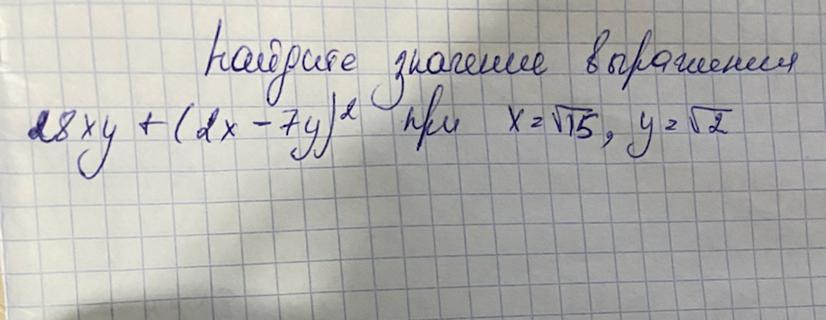 Найдите значение выражения
28xy + (2x - 7y)² при x = √15, y = √2